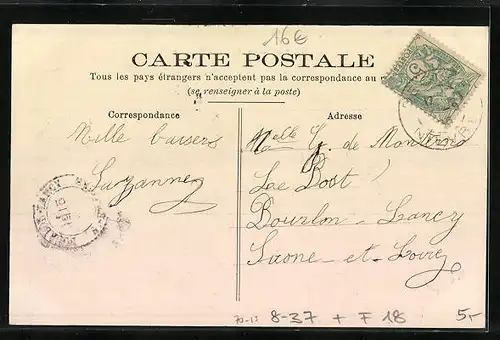 16€
CARTE POSTALE
Tous les pays étrangers n'acceptent pas la correspondance au
(se renseigner à la poste)
Correspondance
Adresse
Mille baisers
Suzanne
Melle G. de
Le Bost
Bourbon-Lancy
Saone-et-Loire
NIÈVRE
8-37 + F 18
5,-